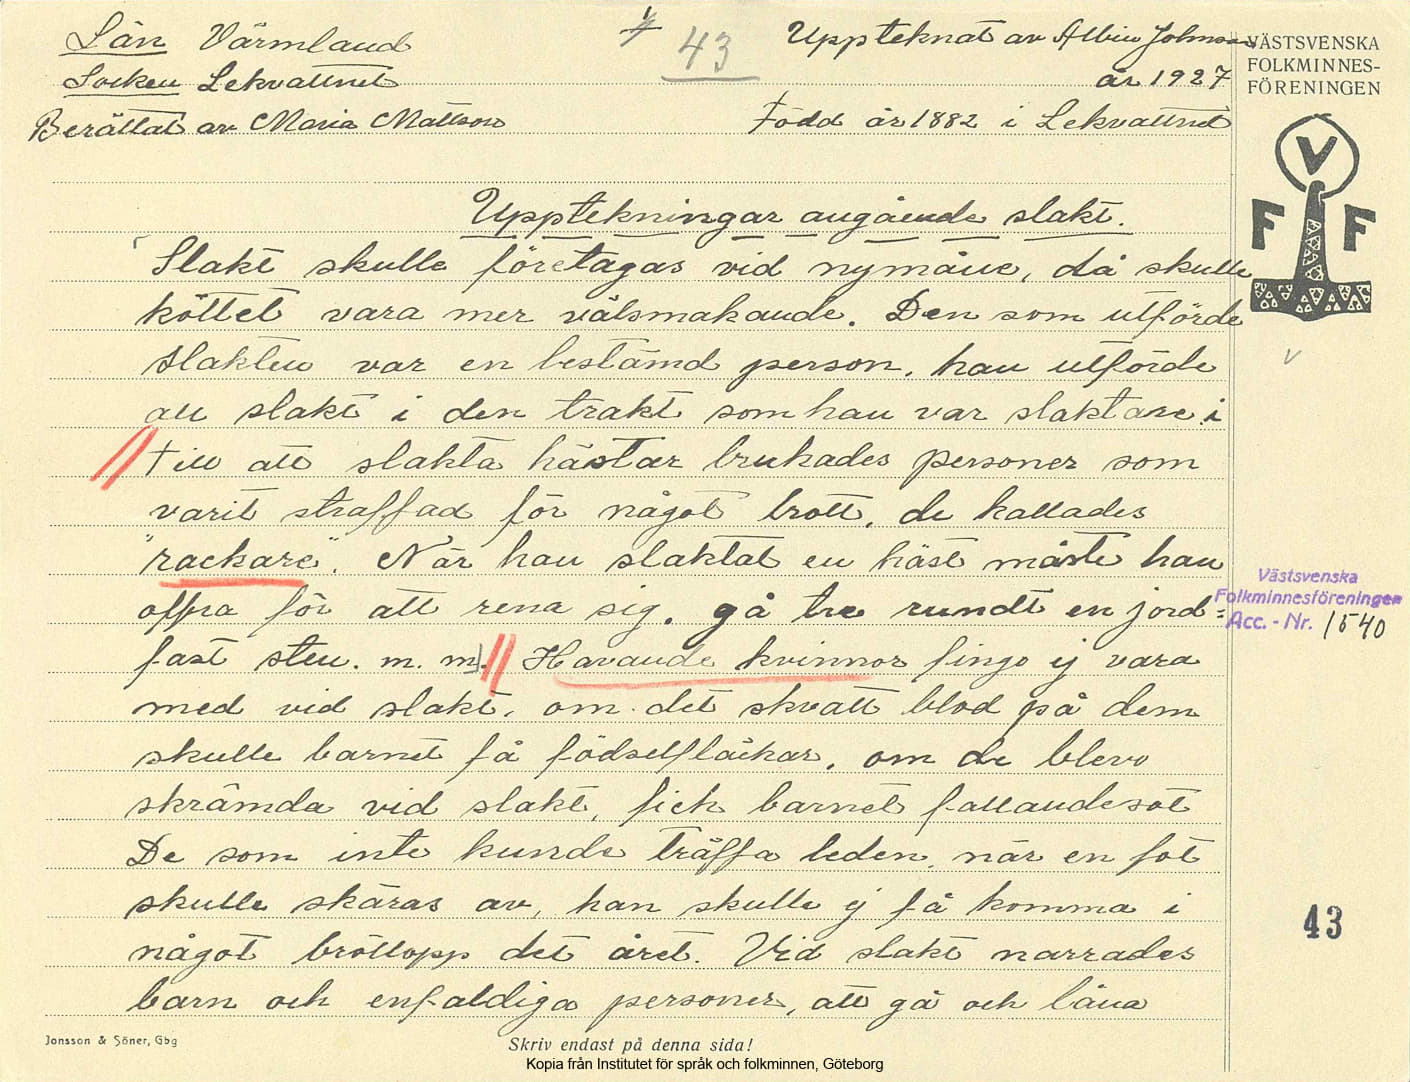 Län Värmland
43
Upptecknat av Albin Johnsson
VÄSTSVENSKA
FOLKMINNES-
FÖRENINGEN
Socken Lekvattnet
år 1927
Berättat av Maria Mattson
Född år 1882 i Lekvattnet
V
F F
Uppteckningar angående slakt.
Slakt skulle företagas vid nymåne, då skulle
köttet vara mer välsmakande. Den som utförde
slakten var en bestämd person, han utförde
all slakt i den trakt som han var slaktare i
till att slakta hästar brukades personer som
varit straffad för något brott, de kallades
"rackare". När han slaktat en häst måste han
offra för att rena sig, gå tre rundt en jord=
fast sten. m. m. Havande kvinnor fingo ej vara
med vid slakt, om det skvatt blod på dem
skulle barnet få födselfläckar, om de blevo
skrämda vid slakt, fick barnet fallandesot
De som inte kunde träffa leden, när en fot
skulle skäras av, han skulle ej få komma i
något bröllopp det året. Vid slakt narrades
barn och enfaldiga personer, att gå och låna
Västsvenska
Folkminnesföreningen
Acc. - Nr. 1540
43
Jonsson & Söner, Gbg
Skriv endast på denna sida!
Kopia från Institutet för språk och folkminnen, Göteborg